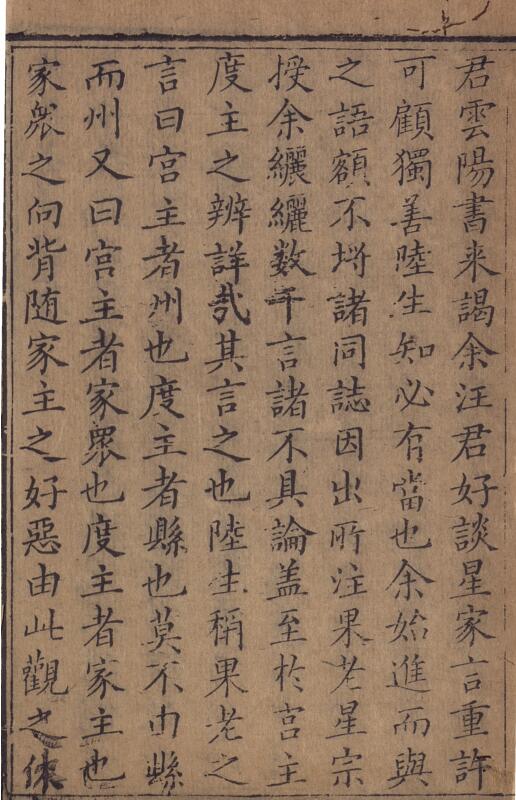 君雲陽書来謁余汪君好談星家言重許
可顧獨善陸生知必有當也余始進而與
之語額不埒諸同誌因出所注果老星宗
授余纚纚数千言諸不具論盖至於宫主
度主之辨詳㢤其言之也陸生稱果老之
言曰宫主者州也度主者縣也莫不由縣
而州又曰宫主者家衆也度主者家主也
家衆之向背随家主之好惡由此觀之休